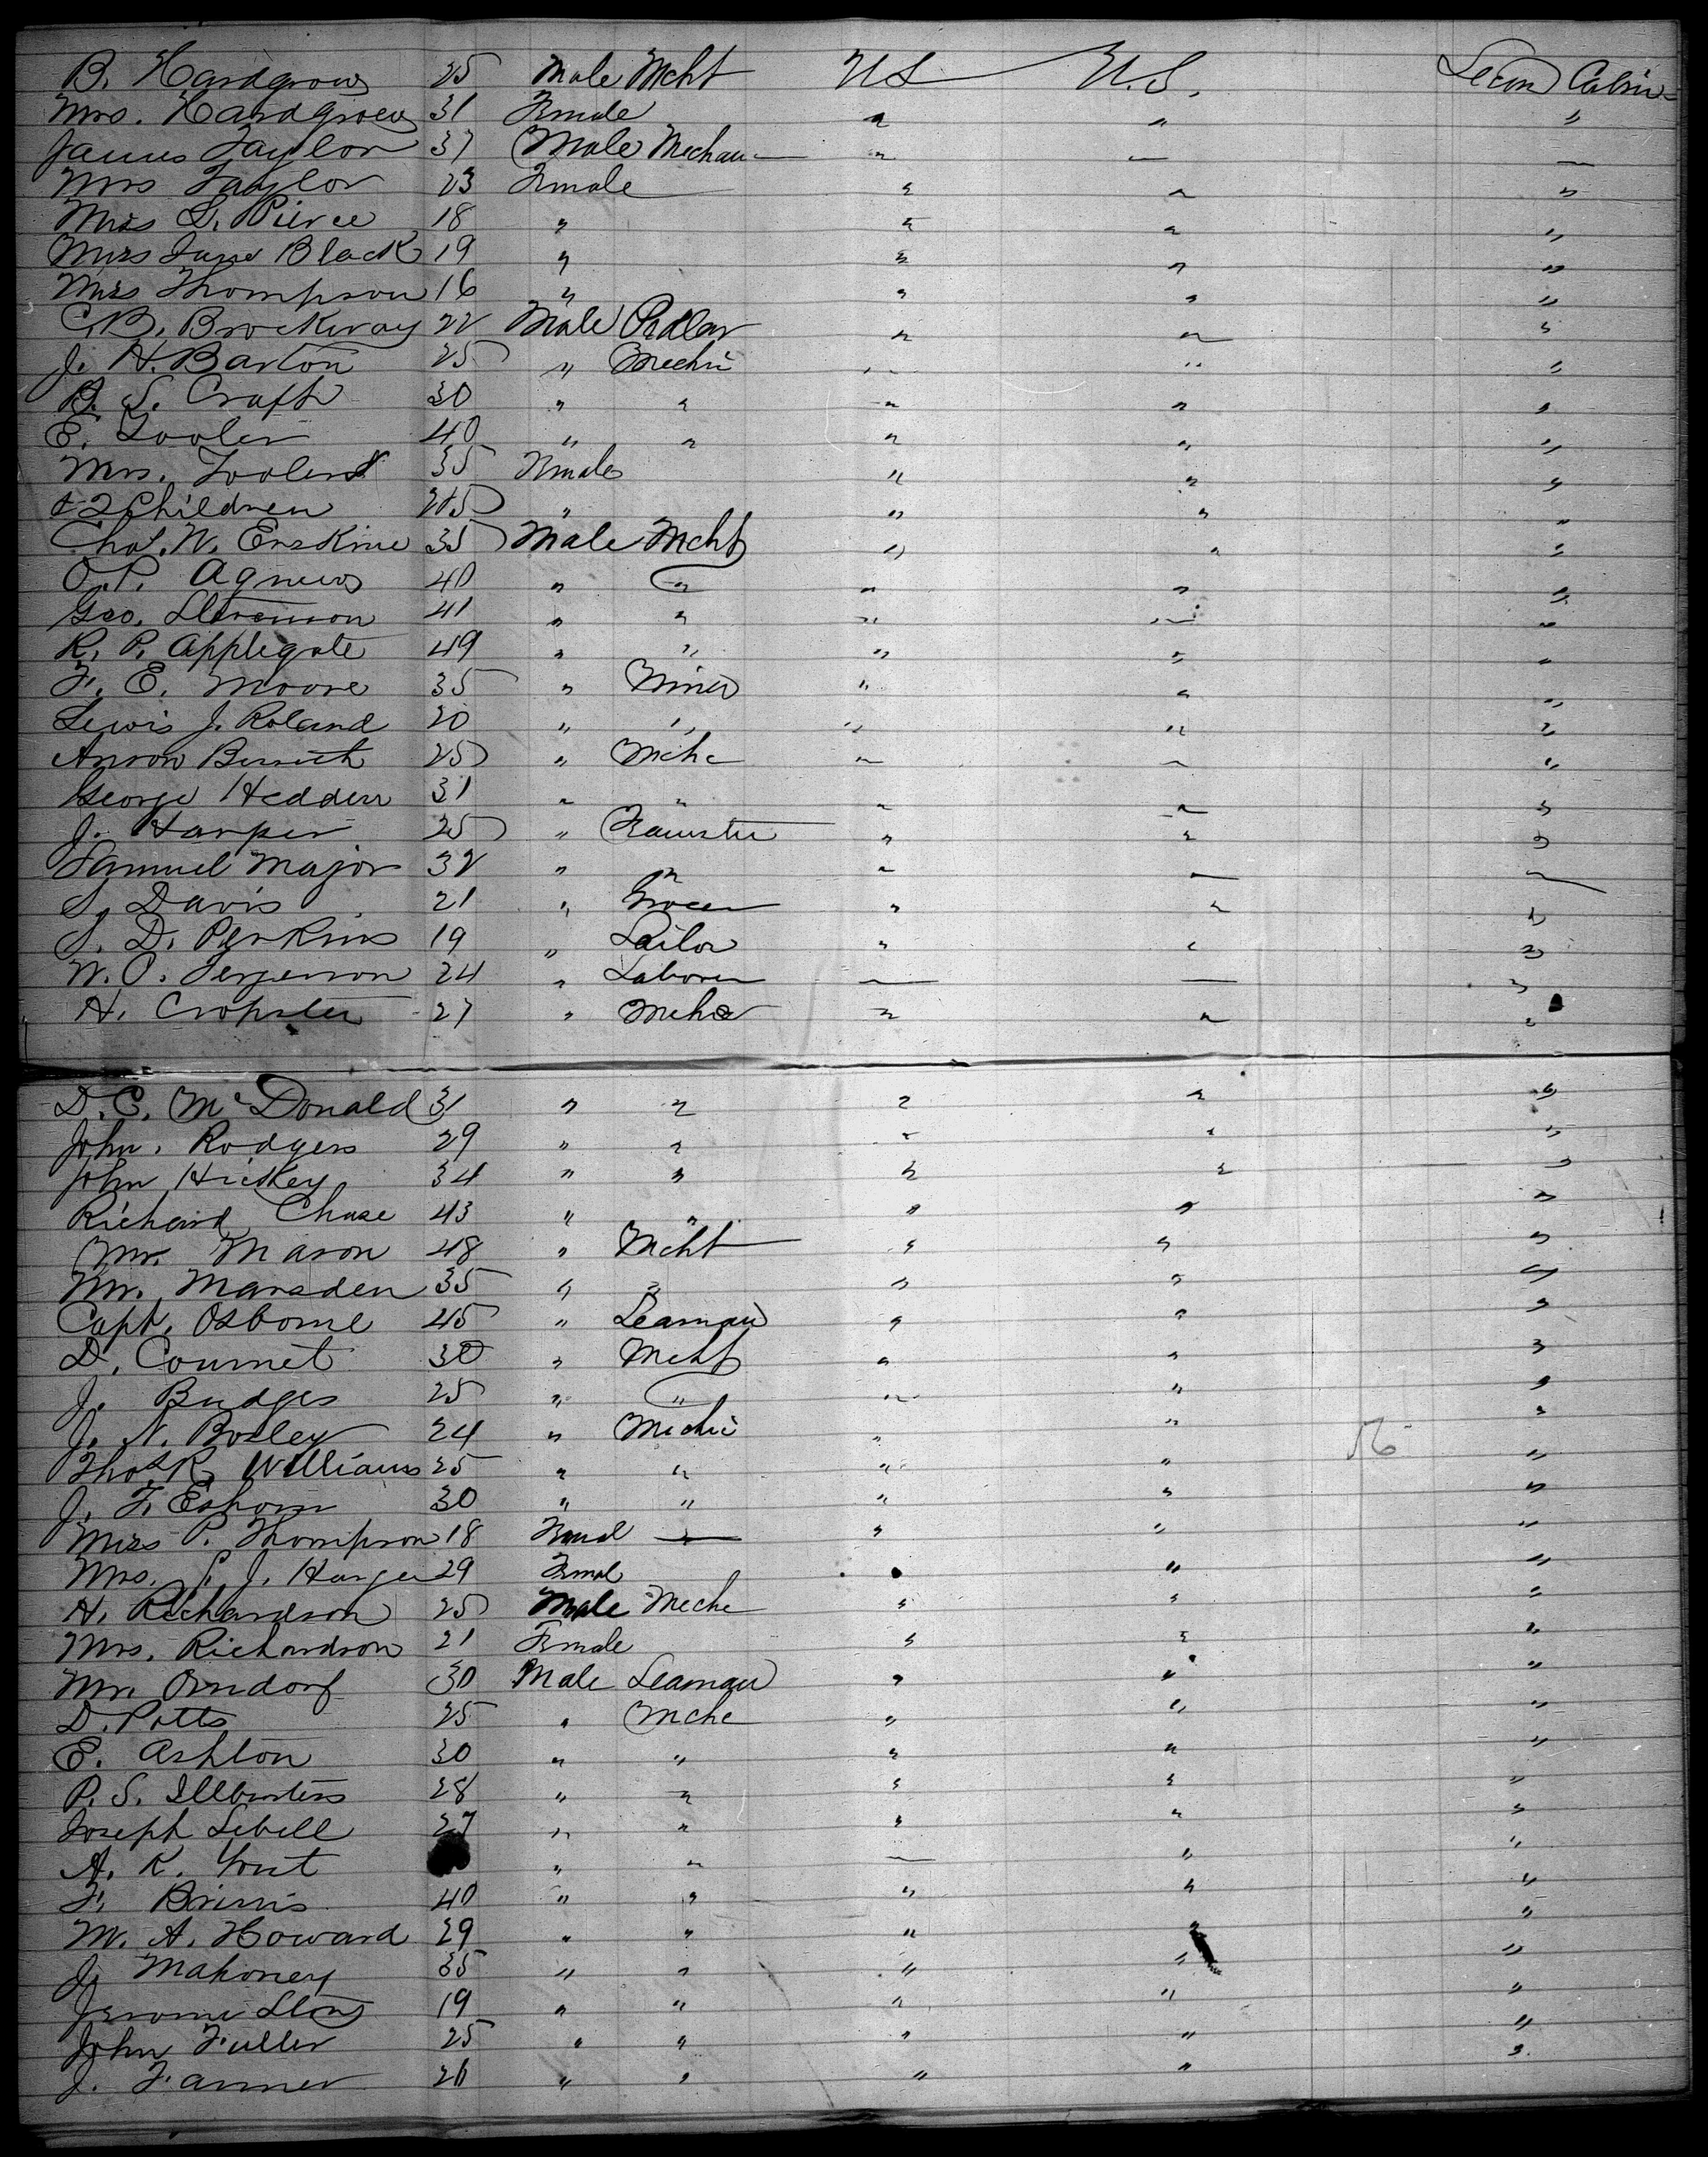 B. Hardgrove 25 Male Mcht US U.S. Second Cabin
Mrs. Hardgrove 31 Female " " "
James Taylor 37 Male Mechan " " "
Mrs Taylor 23 Female " " "
Miss S. Pierce 18 " " " "
Miss Jane Black 19 " " " "
Miss Thompson 16 " " " "
C.B. Brockway 22 Male Pedlar " " "
J. H. Barton 25 " Mechic " " "
B. S. Craft 30 " " " " "
E. Tooler 40 " " " " "
Mrs. Tooler 35 Female " " "
& 2 Children 2&5 " " " "
Chas. W. Erskine 35 Male Mcht " " "
O.P. Agnew 40 " " " " "
Geo. Stevenson 41 " " " " "
R. P. Applegate 49 " " " " "
F. E. Moore 35 " Miner " " "
Lewis J. Roland 20 " " " " "
Anson 25 " Mche " " "
George Hedden 31 " " " " "
J. Harper 25 " Teamster " " "
Samuel Major 32 " " " " "
S. Davis 21 " Grocer " " "
S. D. Perkins 19 " Sailor " " "
W. P. Fergerson 24 " Laborer " " "
H. Cropster 27 " Meche " " "
D. C. McDonald 31 " " " " "
John. Rodgers 29 " " " " "
John Hickey 34 " " " " "
Richard Chase 43 " " " " "
Mr. Mason 48 " Mcht " " "
Mr. Marsden 35 " " " " "
Capt. Osborne 45 " Seaman " " "
D. Cournet 30 " Mcht " " "
J. Budges 25 " " " " "
J. N. Bosley 24 " Mechic " " "
Thos. R. Williams 25 " " " " "
J. F. Eshom 30 " " " " "
Miss P. Thompson 18 Femal " " " "
Mrs. S. J. Harger 29 Femal " "
H. Richardson 25 Male Meche " " "
Mrs. Richardson 21 Female " " "
Mr. Orndorf 30 Male Seaman " " "
D. Potts 25 " Mche " " "
E. Ashton 30 " " " " "
P. S. 28 " " " " "
Joseph Sebell 27 " " " " "
A. K. Yout " " " " "
F. 40 " " " " "
M. A. Howard 29 " " " " "
J. Mahoney 35 " " " " "
Jerome 19 " " " " "
John Fuller 25 " " " " "
J. Farmer 26 " " " " "